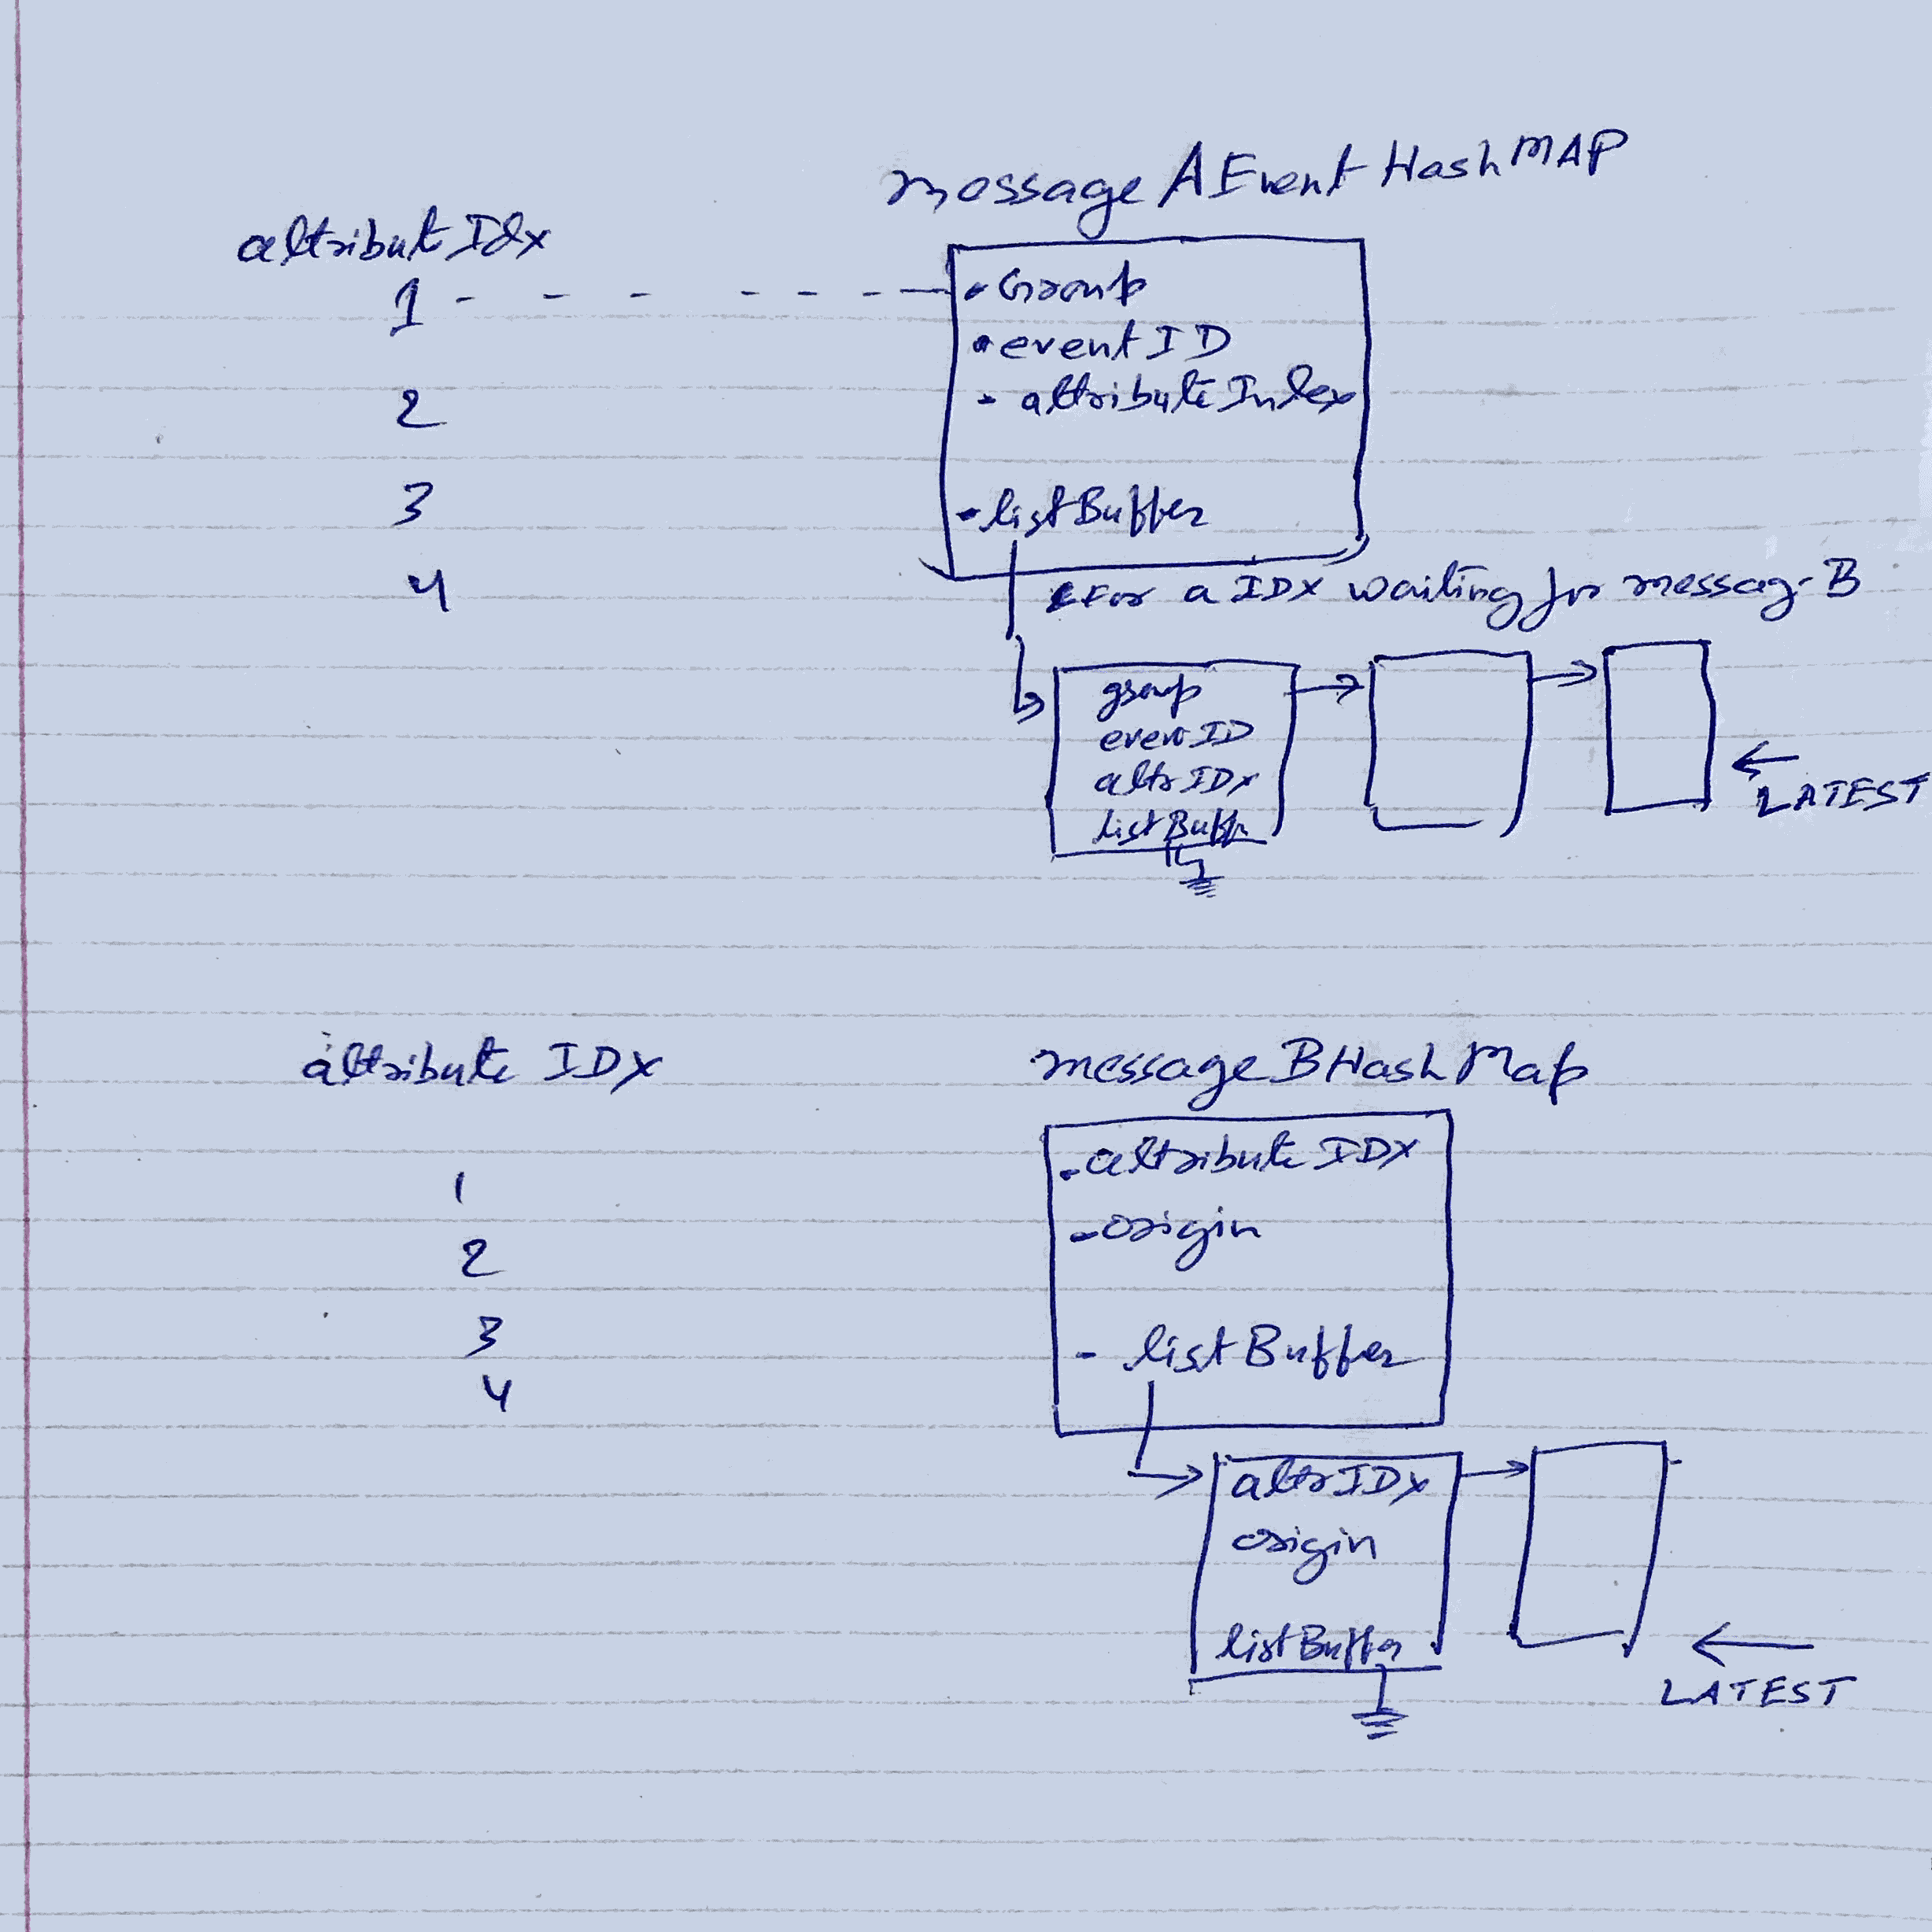 message A Event Hash MAP
attribut Idx
1
• Group
• event ID
2
- attribute Index
3
- list Buffer
4
For a IDX waiting for messag-B
group
even ID
attr IDX
list Buffr
LATEST
attribute IDX
message B Hash Map
1
- attribute IDX
2
- origin
3
- list Buffer
4
attr IDX
origin
list Buffer
LATEST